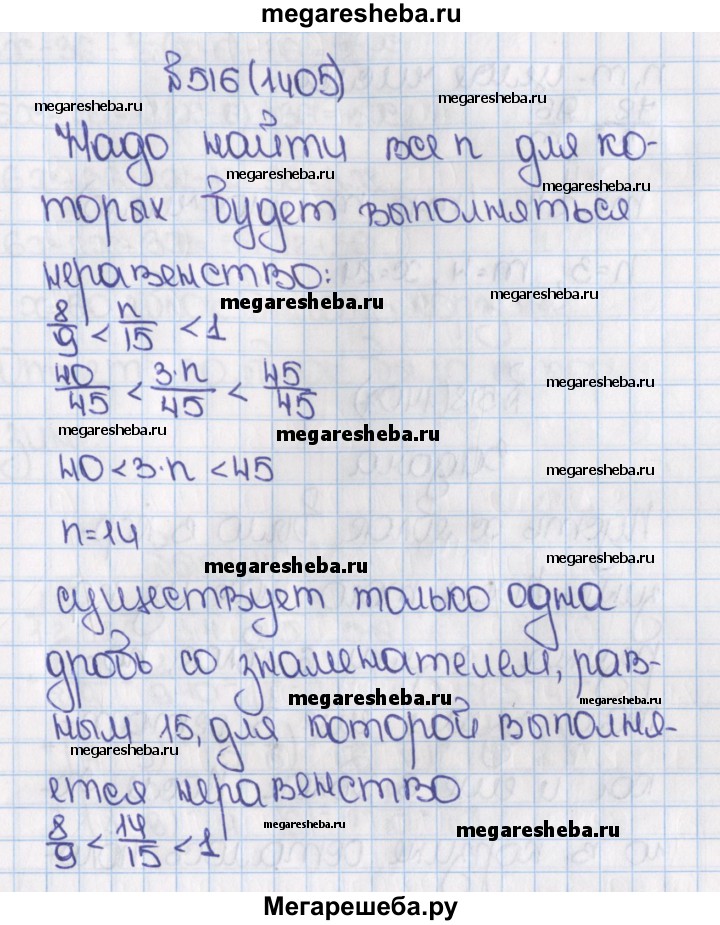 megaresheba.ru
№516(1405)
megaresheba.ru megaresheba.ru
Надо найти все n для ко-
megaresheba.ru megaresheba.ru
торых будет выполняться
неравенство:
megaresheba.ru megaresheba.ru
8/9 < n/15 < 1
40/45 < 3·n/45 < 45/45
megaresheba.ru
megaresheba.ru megaresheba.ru
40<3·n<45
megaresheba.ru
n=14
megaresheba.ru megaresheba.ru
существует только одна
дробь со знаменателем, рав-
megaresheba.ru megaresheba.ru
ным 15, для которой выполня-
megaresheba.ru megaresheba.ru
ется неравенство
8/9 < 14/15 < 1
megaresheba.ru megaresheba.ru
Мегарешеба.ру